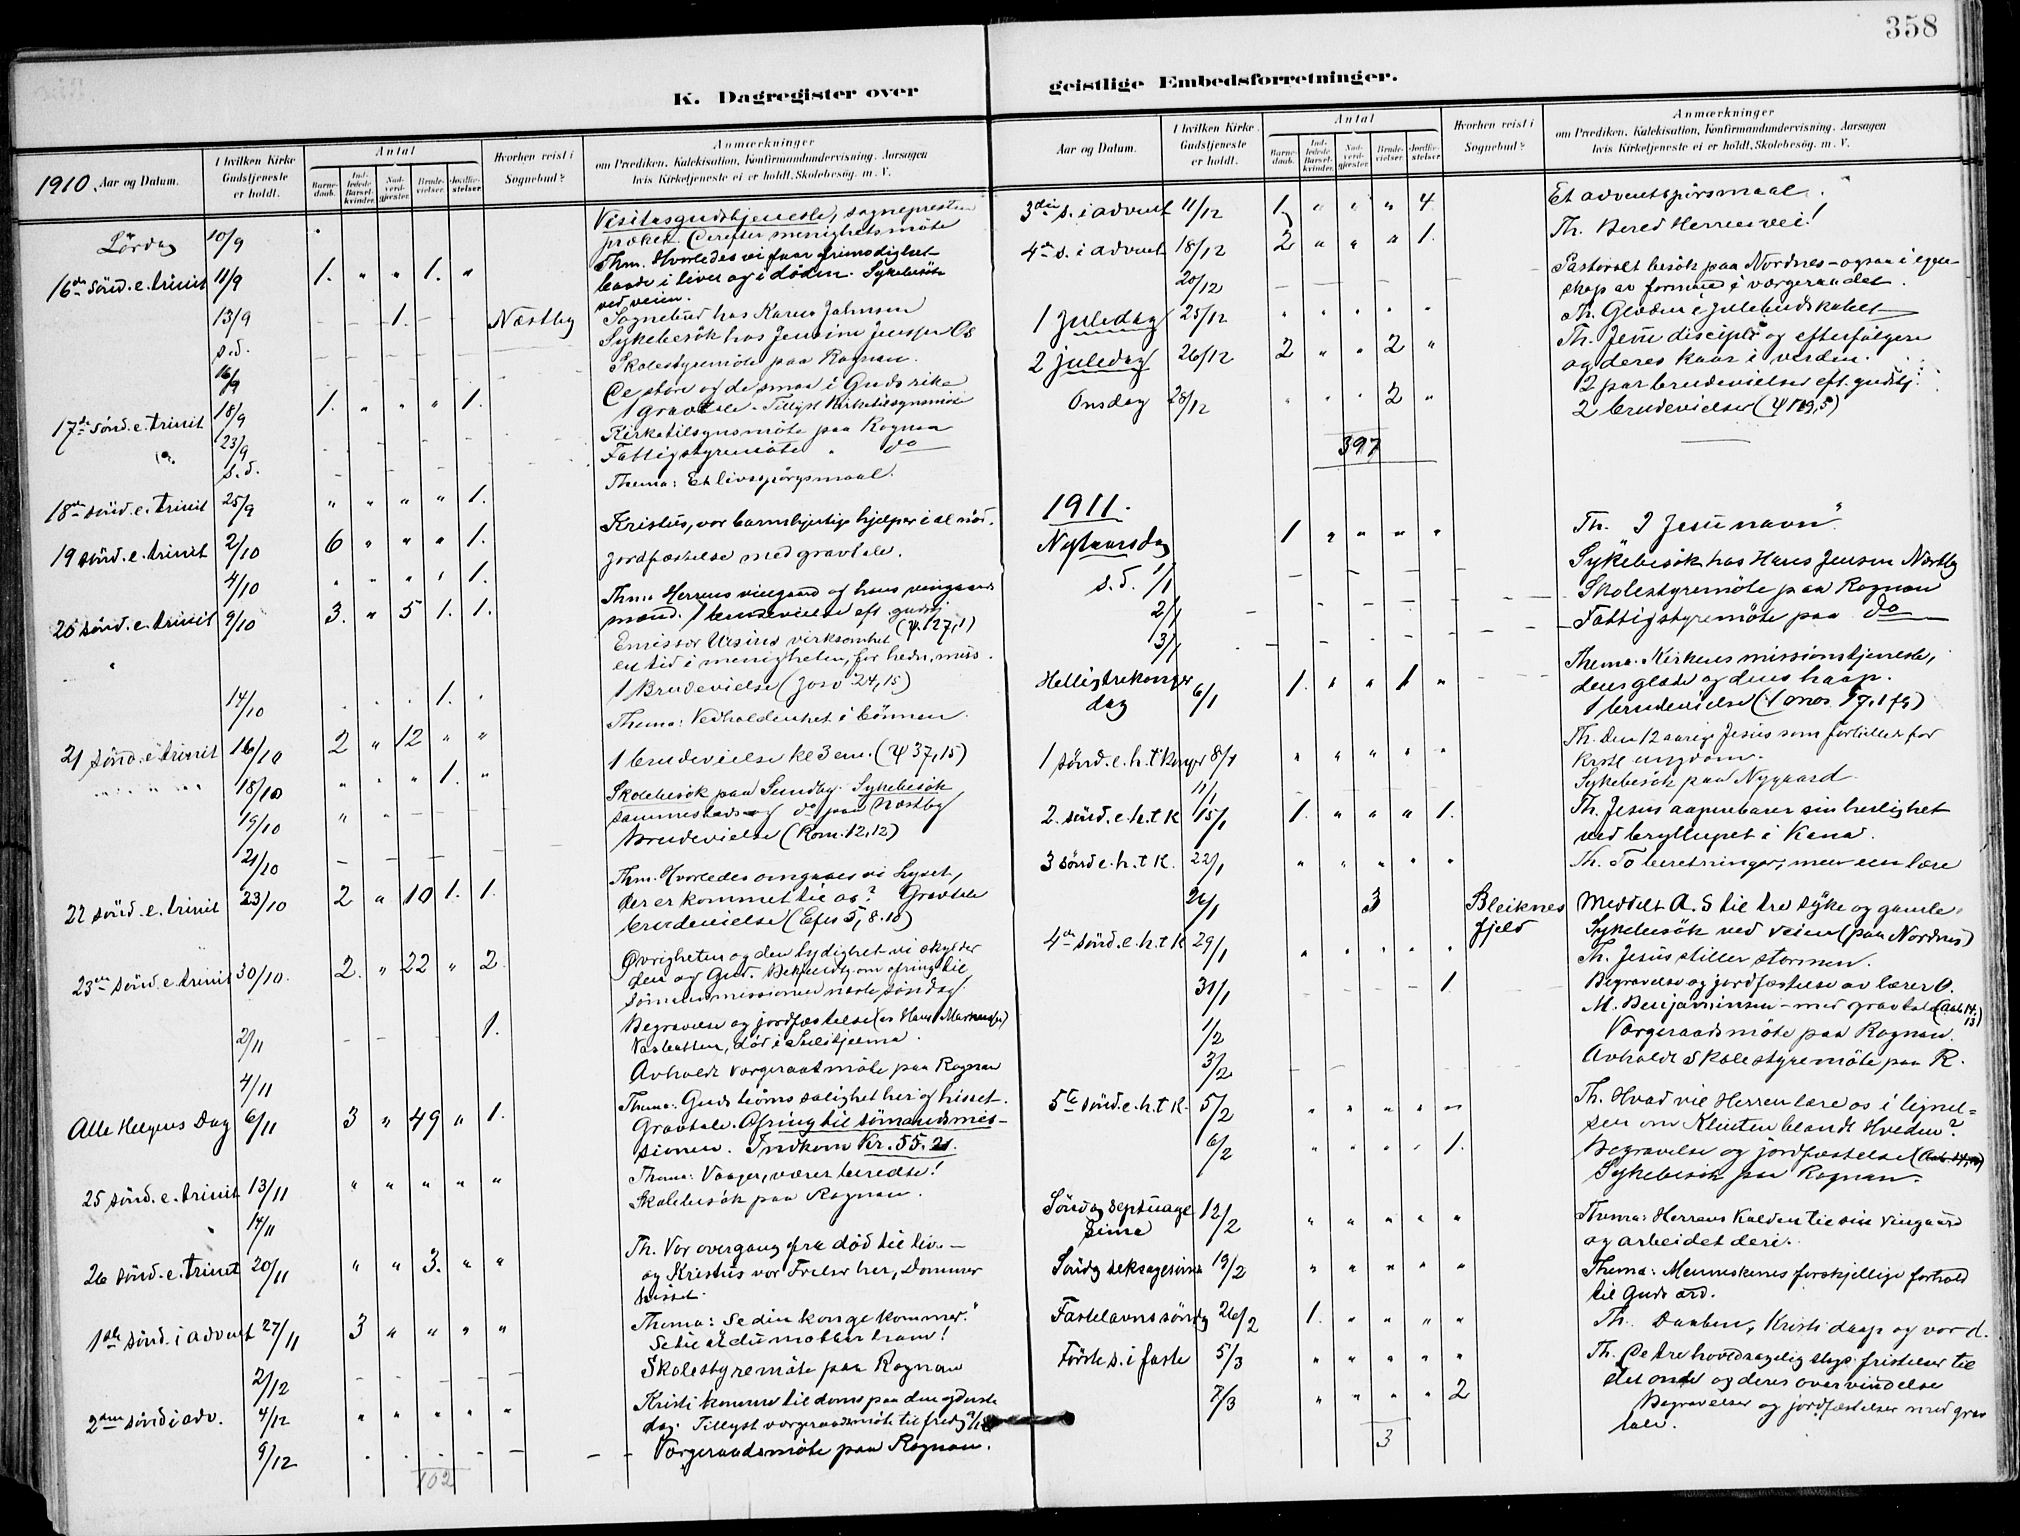 358
K. Dagregister over
geistlige Embedsforretninger.
1910 Aar og Datum.
I hvilken Kirke Gudstjeneste er holdt.
Antal
Barne-daab.
Ind-ledede Barsel-kvinder.
Nad-verd-gjester.
Brude-vielser.
Jordfæ-stelser.
Hvorhen reist i Sognebud?
Anmærkninger
om Prædiken, Katekisation, Konfirmandundervisning, Aarsagen
hvis Kirketjeneste ei er holdt, Skolebesøg, m. V.
Lördag 10/9 Visitasgudstjeneste, sognepresten
præket. Derefter menighetsmöte
16de Sönd. e. trinit 11/9 1. " " 1. " Thm. Hvorledes vi faar frimodighet
baade i livet og i döden. Sykebesök
ved veien.
13/9 1. Næstby Sognebud hos Karen Jahnsen
s.d. Sykebesök hos Jensine Jensen
16/9 Skolestyremöte paa Rognan.
17de sönd. e. trinit 18/9 1. " " " 1. De store og de smaa i Guds rike
1 gravtale. Tillyst Kirketilsynsmöte
23/9 Kirketilsynsmöte paa Rognan
s.d. Fattigstyremöte " do
18de sönd. e. trinit 25/9 " " " " 1. Thema: Et livsspörgsmaal.
19 sönd. e. trinit 2/10 6 " " " 1. Kristus, vor barmhjertige hjelper i al nöd.
4/10 " " " " 1. Jordfæstelse med gravtale.
20 sönd. e. trinit 9/10 3. " 5 1. 1. Thma Herrens vingaard og hans vingaards
mænd. 1 brudevielse eft. gudstj.
(ψ. 127,1)
Emissær virksomhet
en tid i menigheten, for hedn. miss.
14/10 1. 1 Brudevielse (Josv 24,15)
21 sönd. e. trinit 16/10 2 " 12 " " Thema: Vedholdenhet i bönnen.
18/10 " " " 1. " 1 brudevielse kl 3 em. (ψ 37,15)
19/10 Skolebesök paa Sundby. Sykebesök
sammesteds og do paa Næstby
21/10 Brudevielse (Rom. 12,12)
22 sönd. e. trinit 23/10 2 " 10 1. 1. Thm. Hvorledes omgaaes vi Lyset,
der er kommet til os? Gravtale
brudevielse (Efes 5, 8-10)
23de sönd. e. trinit 30/10. 2. " 22 " 2. Övrigheten og den lydighet vi skylder
den og Gud. Bekjendtg. om ofring til
sömandsmissionen næste söndag.
2/11 1. Begravelse og jordfæstelse
död i Sulitjelma.
4/11 Avholdt vorgeraadmöte paa Rognan
Alle Helgens Dag 6/11 3 " 49 " 1. Thema: Guds börns salighet her og hisset.
Gravtale. Ofring til sömandsmis-
sionen. Indkom Kr. 55.21.
25 sönd. e. trinit 13/11 " " " " " Thema: Vaager, værer beredte!
14/11 Skolebesök paa Rognan.
26 sönd. e. trinit 20/11 " " 3. " " Th. Vor overgang fra död til liv. —
og Kristus vor Frelser her, Dommer
hisset.
1ste sönd. i advent 27/11 3 " " " " Thema: Se din konge kommer."
Se til at du motter ham!
2/12 Skolestyremöte paa Rognan
2den sönd i adv. 4/12 " " " " " Kristi komme til doms paa den yderste
dag. Tillyst vorgeraadsmöte til fredag 9/12
9/12 Vorgeraadsmöte paa Rognan.
102
Aar og Datum.
I hvilken Kirke Gudstjeneste er holdt.
Antal
Barne-daab.
Ind-ledede Barsel-kvinder.
Nad-verd-gjester.
Brude-vielser.
Jordfæ-stelser.
Hvorhen reist i Sognebud?
Anmærkninger
om Prædiken, Katekisation, Konfirmandundervisning, Aarsagen
hvis Kirketjeneste ei er holdt, Skolebesøg, m. V.
3die s. i advent 11/12 1 " " " 4. Et adventspörsmaal.
4de s. i advent 18/12 2 " " " 1. Th. Bered Herren vei!
20/12 Pastoralt besök paa Nordnes — ogsaa i egen-
skap av formand i værgeraadet.
1 Juledag 25/12 " " " " " Th. Glæden i Julebudskabet
2 juledag 26/12 2 " " 2 " Th. Jesu disciple og efterfölgere
og deres kaar i verden.
2 par brudevielser eft. gudstj.
Onsdag 28/12 " " " 2 " 2 brudevielser (ψ 119,5)
397
1911.
Nytaarsdag 1 " " " " Th. I Jesu navn".
s.d. 1/1 Sykebesök hos Hans Jensen Næstby
2/1 Skolestyremöte paa Rognan
3/1 Fattigstyremöte paa do
Helligtrekonger dag 6/1 1. " " 1 " Thema. Kirkens missionstjeneste,
dens glæde og dens haap.
1 brudevielse (1 mos. 17,1 fg)
1 sönd. e. h. t konger 8/1 " " " " " Th. Den 12 aarige Jesus som forbillede for
kristl ungdom.
11/1 Sykebesök paa Nygaard
2. sönd. e. h. t K 15/1 1. " " " 1. Th. Jesus aapenbarer sin herlighet
ved bryllupet i Kana.
3 sönd e. h. t K. 22/1 " " " " " Th. To beretninger, men een lære
24/1 3 Bleiknes fjeld Meddelt A. S til tre syke og gamle.
Sykebesök ved veien (paa Nordnes)
4de sönd. e. h. t K 29/1 " " " " " Th. Jesus stiller stormen.
31/1 1. Begravelse og jordfæstelse av lærer O.
M. Benjaminsen — med gravtale (Aab 14, 13)
1/2 Vorgeraadsmöte paa Rognan.
3/2 Avholdt Skolestyremöte paa R.
5te sönd. e. h. t K. 5/2 " " " " " Th. Hvad vil Herren lære os i lignel-
sen om Klinten blandt Hveden?
6/2 " " " " 1. Begravelse og jordfæstelse
Sykebesök paa Rognan.
Söndag septuage sima 12/2 " " " " " Thema: Herrens kalden til sin vingaard
og arbeidet deri.
Söndg seksagesima 19/2 " " " " " Thema: Menneskenes forskjellige forhold
til Guds ord.
Fastelavnssöndg 26/2 1. " " " " Th. Daaben, Kristi daap og vor d.
Förste s. i faste 5/3 " " " " " Th. De tre hovedsagelig slags fristelser til
det onde og deres overvindelse
7/3 " " " " 2 Begravelser og jordfæstelser med grav
tale.
3